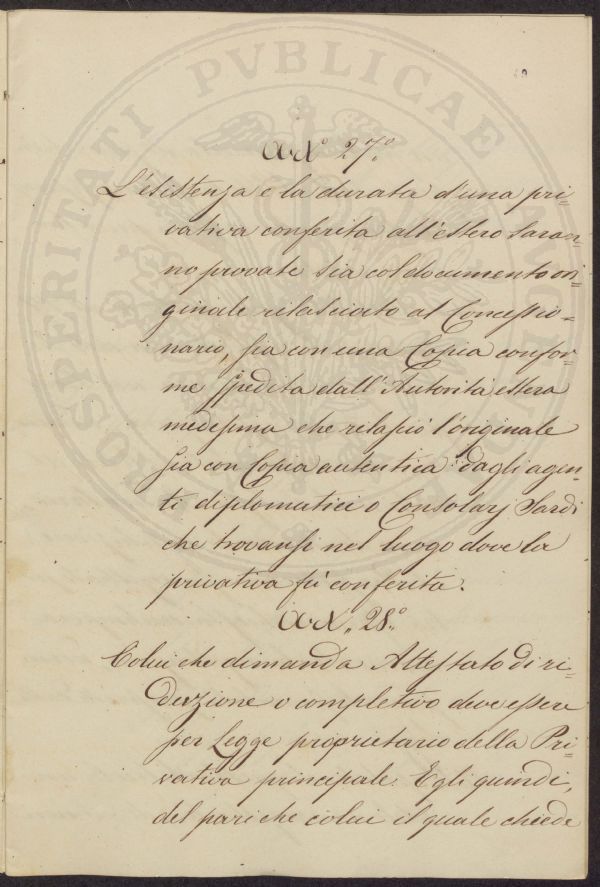 PROSPERITATI PVBLICAE
Art.º 27.º
L'esistenza e la durata d'una pri=
vativa conferita all'estero saran=
no provate sia col documento ori=
ginale rilasciato al Concessio=
nario, sia con una Copia confor=
me spedita dall'Autorità estera
medesima che rilasciò l'originale
sia con Copia autentica dagli agen=
ti diplomatici o Consolarj Sardi
che trovansi nel luogo dove la
privativa fù conferita.
Art. 28.º
Colui che dimanda Attestato di ri=
duzione o completivo deve essere
per Legge proprietario della Pri=
vativa principale. Egli quindi,
del pari che colui il quale chiede